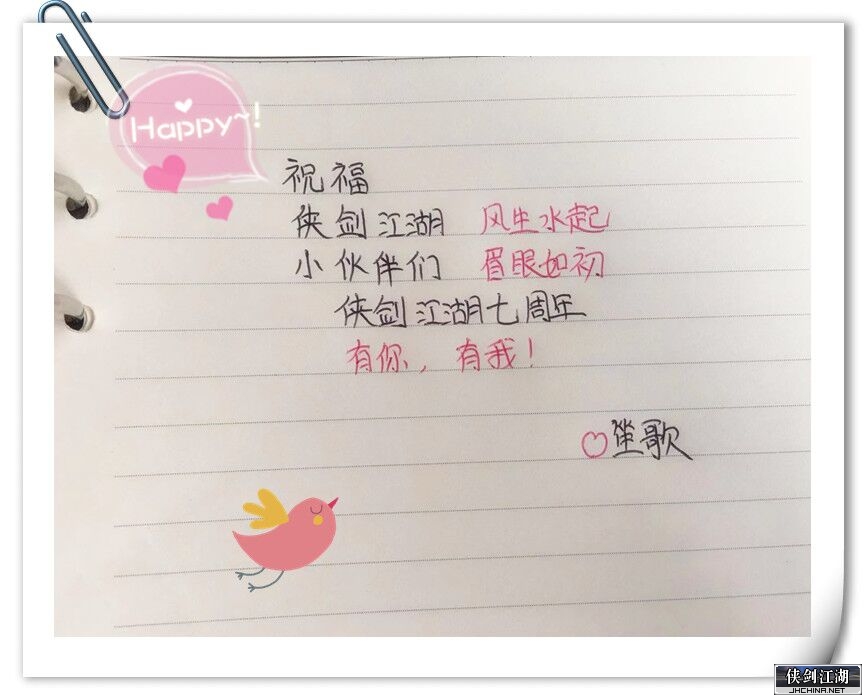 Happy~!
祝福
侠剑江湖 风生水起
小伙伴们 眉眼如初
侠剑江湖七周年
有你，有我！
笙歌
侠剑江湖
JHCHINA.NET